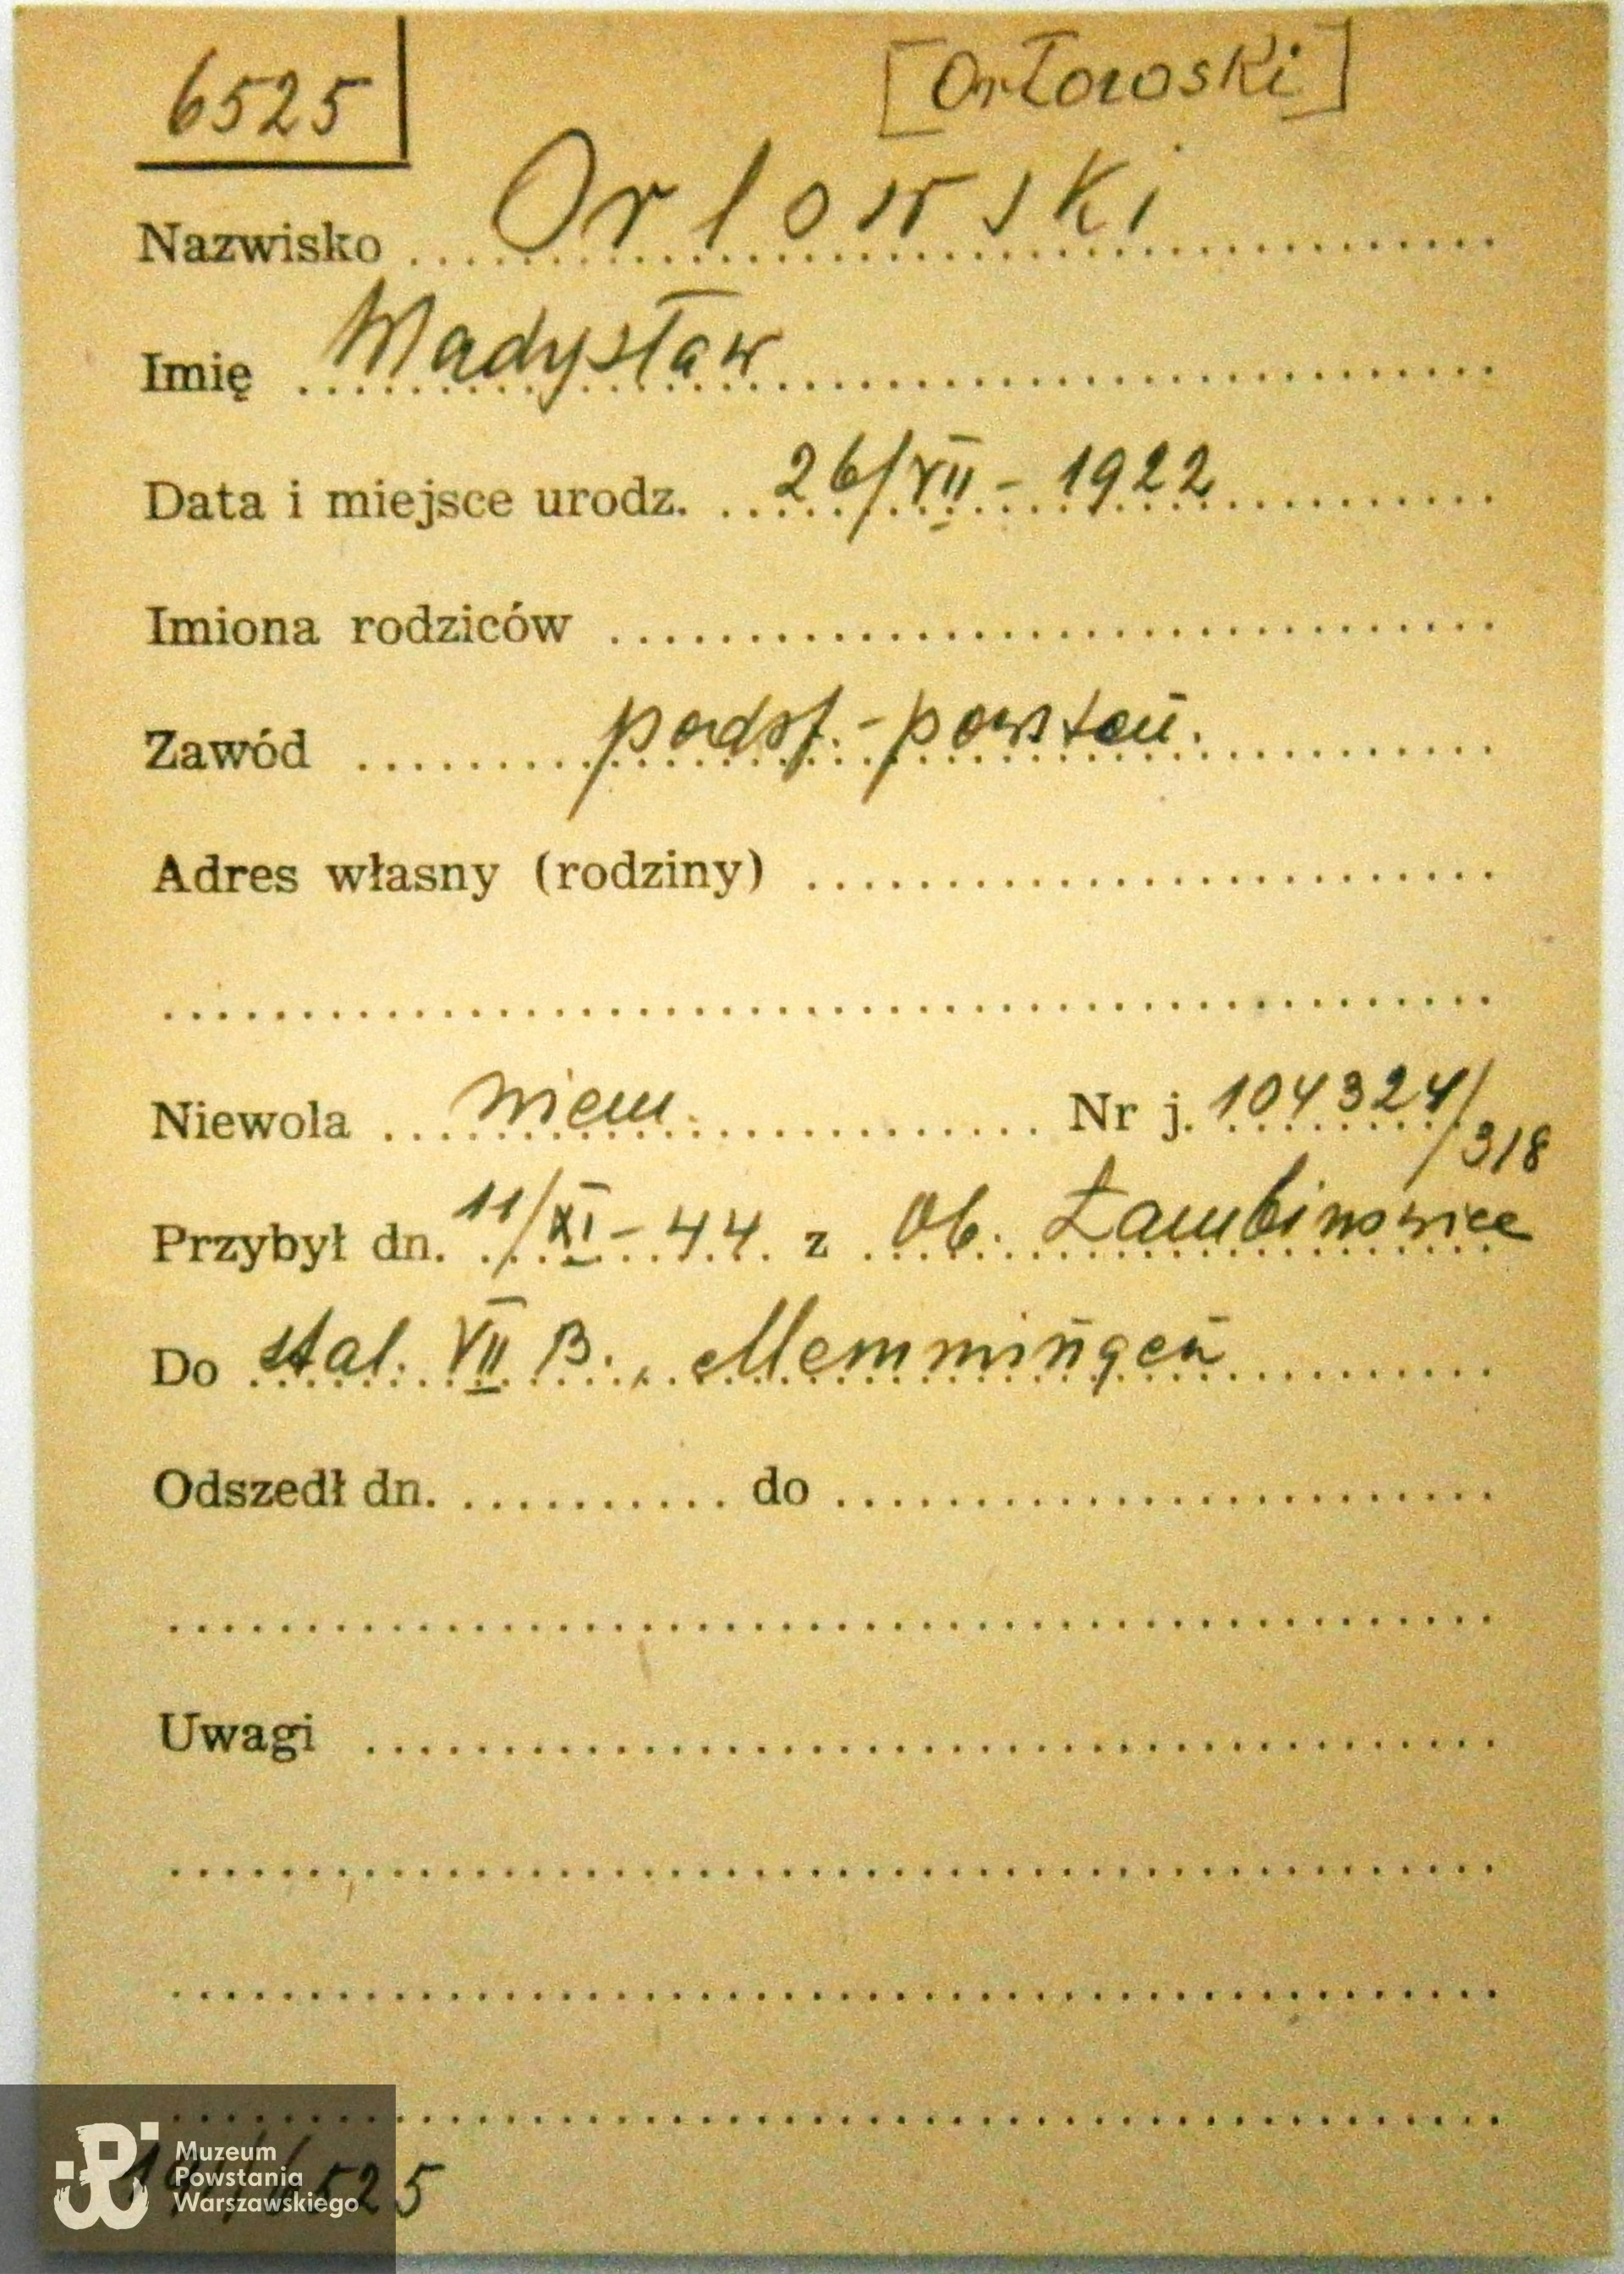 6525
[Orłowski]
Nazwisko Orlowski
Imię Władysław
Data i miejsce urodz. 26/VII - 1922
Imiona rodziców
Zawód podof. - powstań.
Adres własny (rodziny)
Niewola niem. Nr j. 104324/318
Przybył dn. 11/XI - 44 z Ob. Łambinowice
Do stal. VII B., Memmingen
Odszedł dn. do
Uwagi
Muzeum
Powstania
Warszawskiego
6525